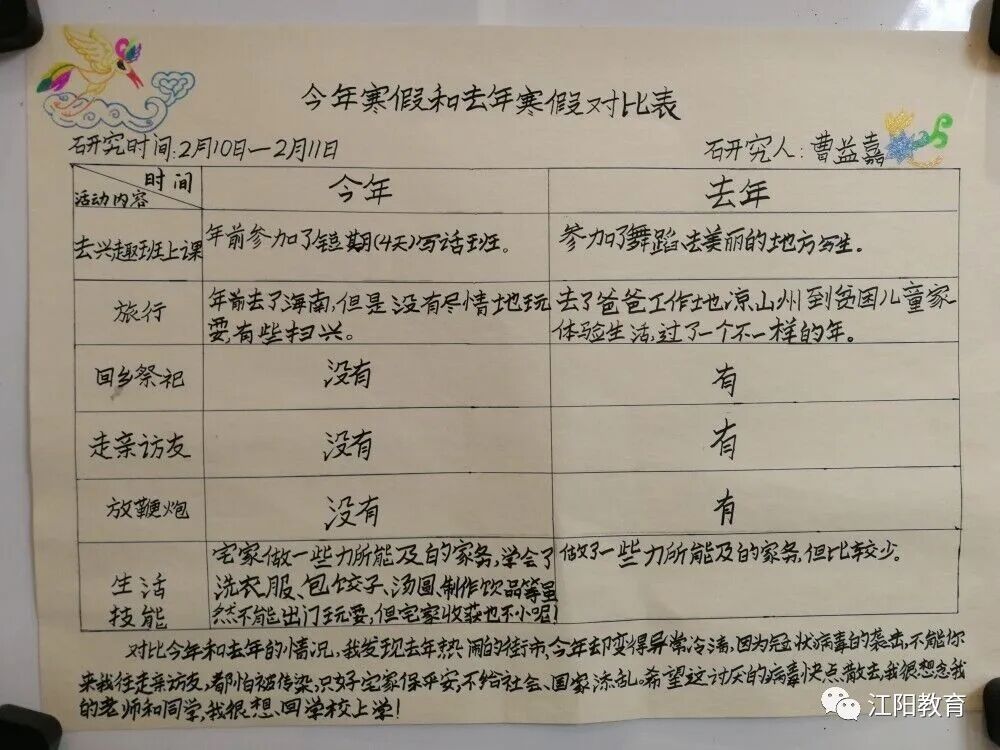 今年寒假和去年寒假对比表
研究时间:2月10日—2月11日
研究人:曹益嘉
时间
活动内容
今年
去年
去兴趣班上课
年前参加了短期(4天)写话班。
参加了舞蹈、去美丽的地方写生。
旅行
年前去了海南,但是没有尽情地玩
耍,有些扫兴。
去了爸爸工作地,凉山州到贫困儿童家
体验生活,过了一个不一样的年。
回乡祭祀
没有
有
走亲访友
没有
有
放鞭炮
没有
有
生活
技能
宅家做一些力所能及的家务,学会了
洗衣服、包饺子、汤圆,制作饮品等虽
然不能出门玩耍,但宅家收获也不小呢!
做了一些力所能及的家务,但比较少。
对比今年和去年的情况,我发现去年热闹的街市,今年却变得异常冷清,因为冠状病毒的袭击,不能你
来我往走亲访友,都怕被传染,只好宅家保平安,不给社会、国家添乱。希望这讨厌的病毒快点散去,我很想念我
的老师和同学,我很想回学校上学!
江阳教育